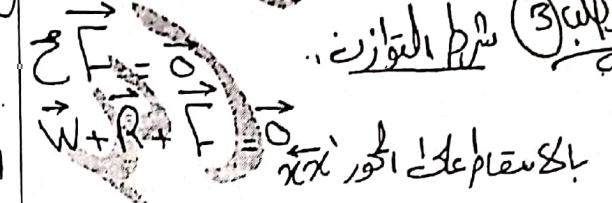 الطلب ③ شرط التوازن:
ΣF⃗ = 0⃗
W⃗ + R⃗ + F⃗ = 0⃗
بالاسقاط على المحور x'x